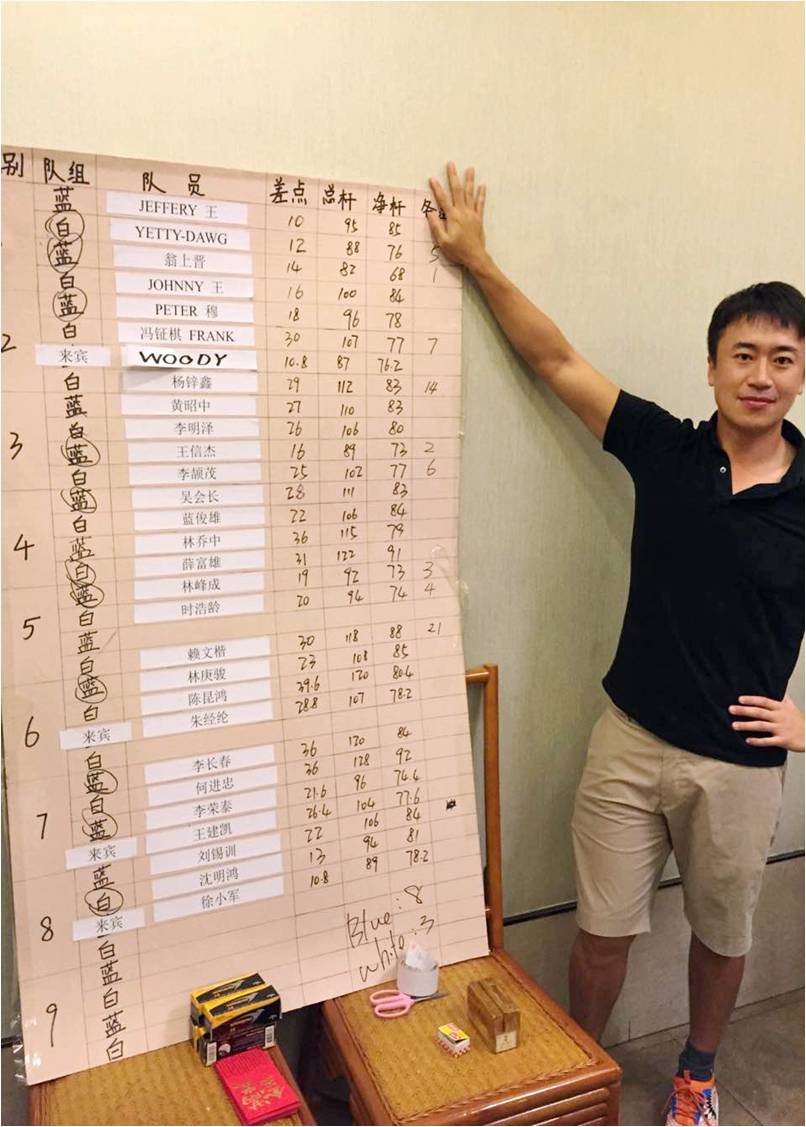 别 队组 队员 差点 总杆 净杆
蓝 JEFFERY 王 10 95 85
白 YETTY-DAWG 12 88 76 5
蓝 翁上晋 14 82 68 1
白 JOHNNY 王 16 100 84
蓝 PETER 穆 18 96 78
白 冯钲棋 FRANK 30 107 77 7
2 来宾 WOODY 10.8 87 76.2
白 杨锌鑫 29 112 83 14
蓝 黄昭中 27 110 83
白 李明泽 26 106 80
3 蓝 王信杰 16 89 73 2
白 李颉茂 25 102 77 6
蓝 吴会长 28 111 83
白 蓝俊雄 22 106 84
4 蓝 林乔中 36 115 79
白 薛富雄 31 122 91
蓝 林峰成 19 92 73 3
5 白 时浩龄 20 94 74 4
蓝
白 赖文楷 30 118 88 21
蓝 林庚骏 23 108 85
白 陈昆鸿 39.6 120 80.4
6 来宾 朱经纶 28.8 107 78.2
白
蓝 李长春 36 120 84
白 何进忠 36 128 92
7 蓝 李荣泰 21.6 96 74.4
来宾 王建凯 26.4 104 77.6
蓝 刘锡训 22 106 84
白 沈明鸿 13 94 81
8 来宾 徐小军 10.8 89 78.2
白
蓝
白
9 蓝
白
Blue: 8
White: 3